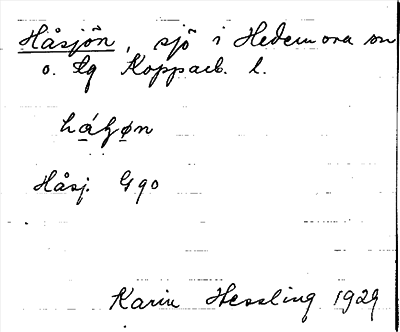 Håsjön, sjö i Hedemora sn
o. lg Kopparb. l.
Håsj. G90
Karin Hessling 1929